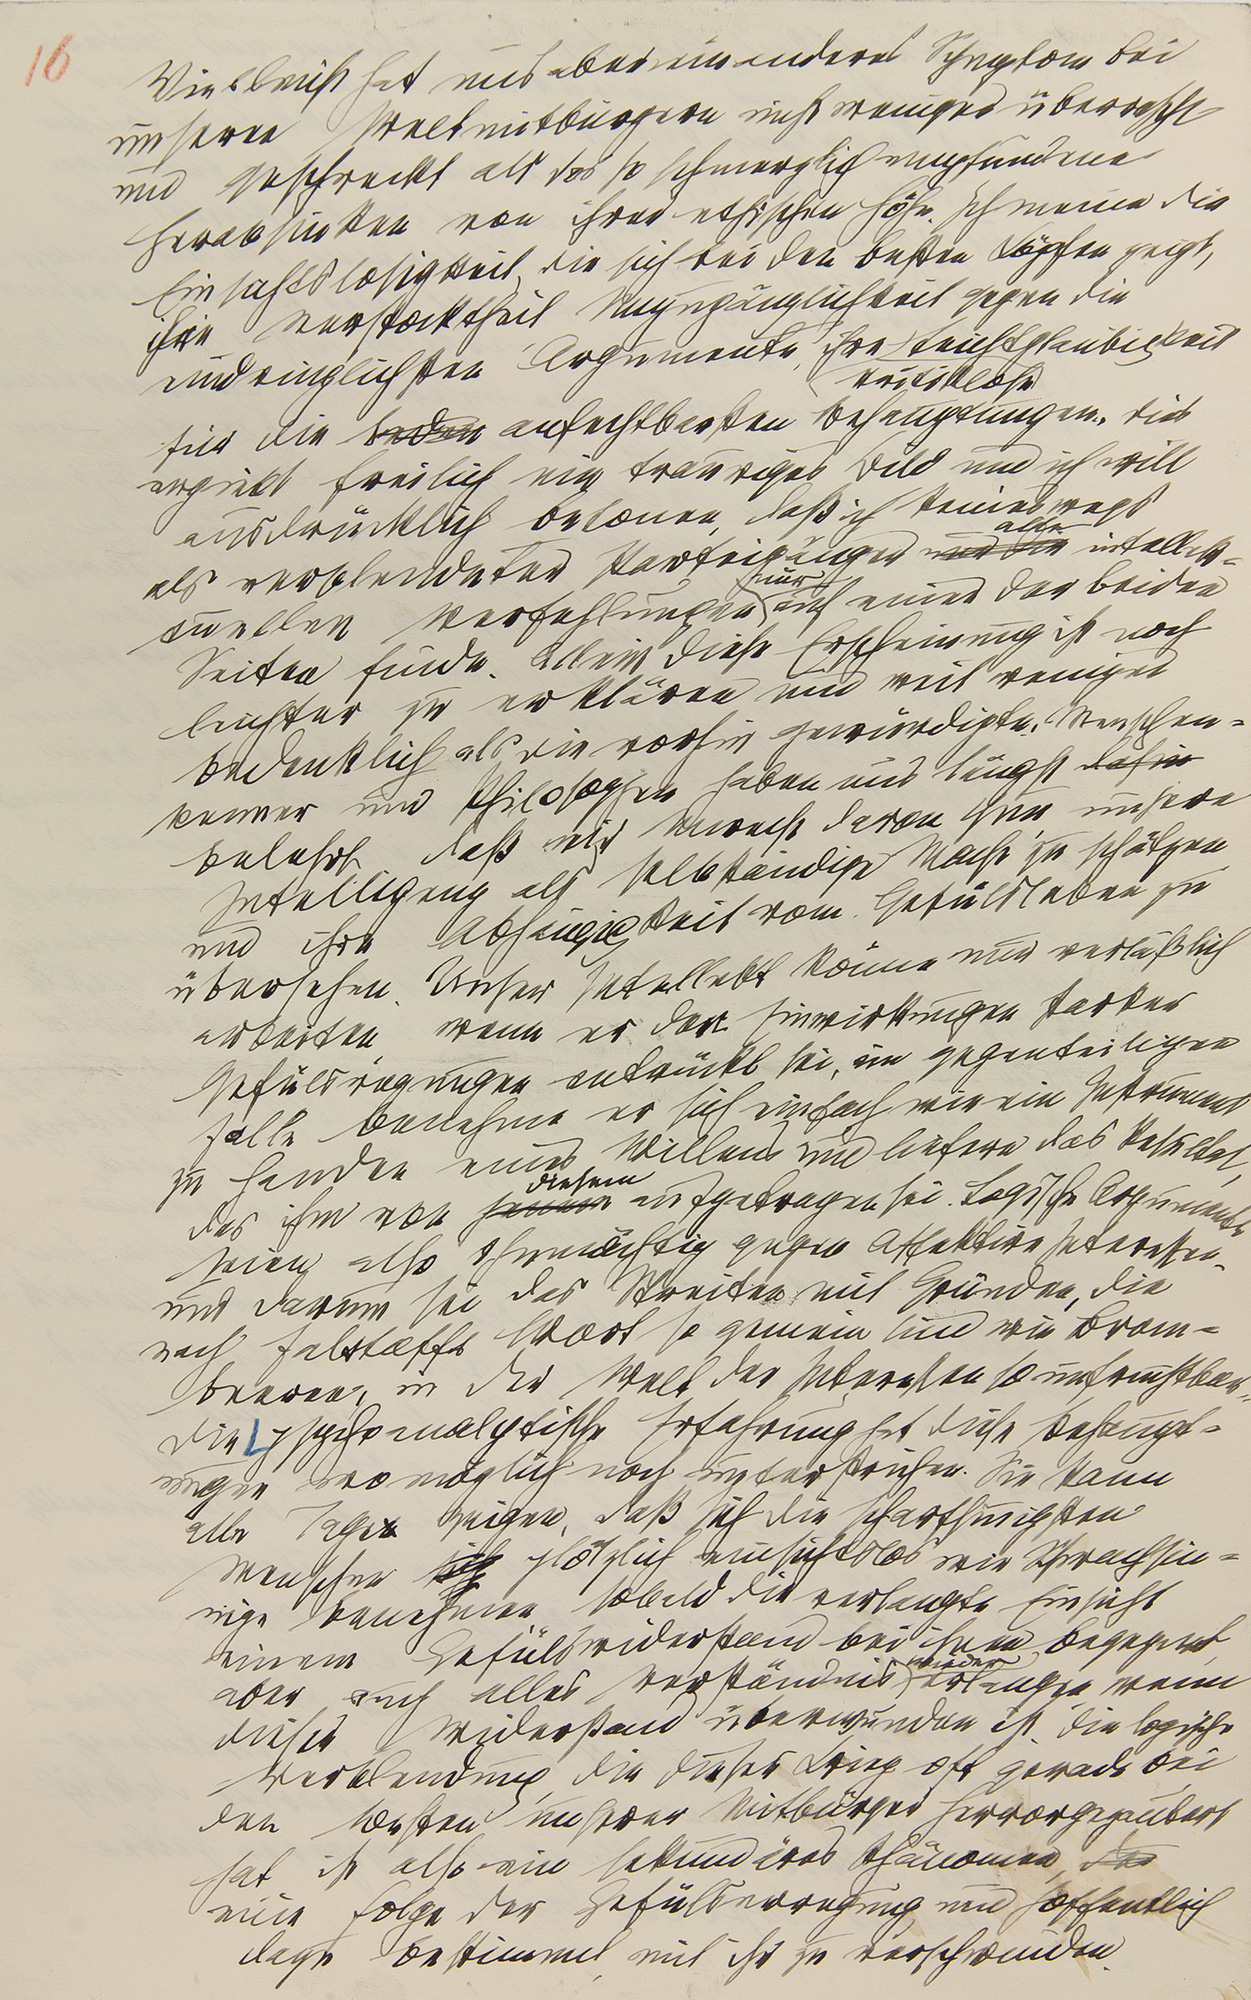 16
Vielleicht hat uns aber ein anderes Symptom bei
unseren Weltmitbürgern nicht weniger überrascht
und geschreckt als das so schmerzlich empfundene
Herabsinken von ihrer ethischen Höhe. Ich meine die
Einsichtslosigkeit, die sich bei den besten Köpfen zeigt,
ihre Verstocktheit Unzugänglichkeit gegen die
eindringlichsten Argumente, ihre Leichtgläubigkeit
kritiklose
für die anfechtbarsten Behauptungen. Dies
ergiebt freilich ein trauriges Bild und ich will
ausdrücklich betonen, daß ich keineswegs
als verblendeter Parteigänger und die alle intellek-
tuellen Verfehlungen nur auf einer der beiden
Seiten finde. Allein diese Erscheinung ist noch
leichter zu erklären und weit weniger
bedenklich als die vorhin gewürdigte. Menschen-
kenner und Philosophen haben uns längst dahin
belehrt daß wir Unrecht daran thun unsere
Intelligenz als selbständige Macht zu schätzen
und ihre Abhängigkeit vom Gefülsleben zu
übersehen. Unser Intellekt könne nur verläßlich
arbeiten wenn er den Einwirkungen starker
Gefülsregungen entrückt sei, im gegenteiligen
Falle benehme er sich einfach wie ein Instrument
zu Handen eines Willens und liefere das Resultat,
das ihm von diesem aufgetragen sei. Logische Argumente
seien also ohnmächtig gegen affektive Interessen
und darum sei das Streiten mit Gründen, die
nach Falstaffs Wort so gemein sind wie Brom-
beeren, in der Welt der Interessen so unfruchtbar.
Die psychoanalytische Erfahrung hat diese Behaupt-
ungen womöglich noch unterstrichen. Sie kann
alle Tage zeigen, daß sich die scharfsinnigsten
Menschen sich plötzlich einsichtslos wie Schwachsin-
nige benehmen, sobald die verlangte Einsicht
einem Gefülswiderstand bei ihnen begegnet,
aber auch alles Verständnis wieder erlangen wenn
dieser Widerstand überwunden ist. Die logische
Verblendung, die dieser Krieg oft gerade bei
den besten unserer Mitbürger hervorgezaubert
hat ist also ein sekundäres Phänomen, das
eine Folge der Gefülserregung und hoffentlich
dazu bestimmt, mit ihr zu verschwinden.